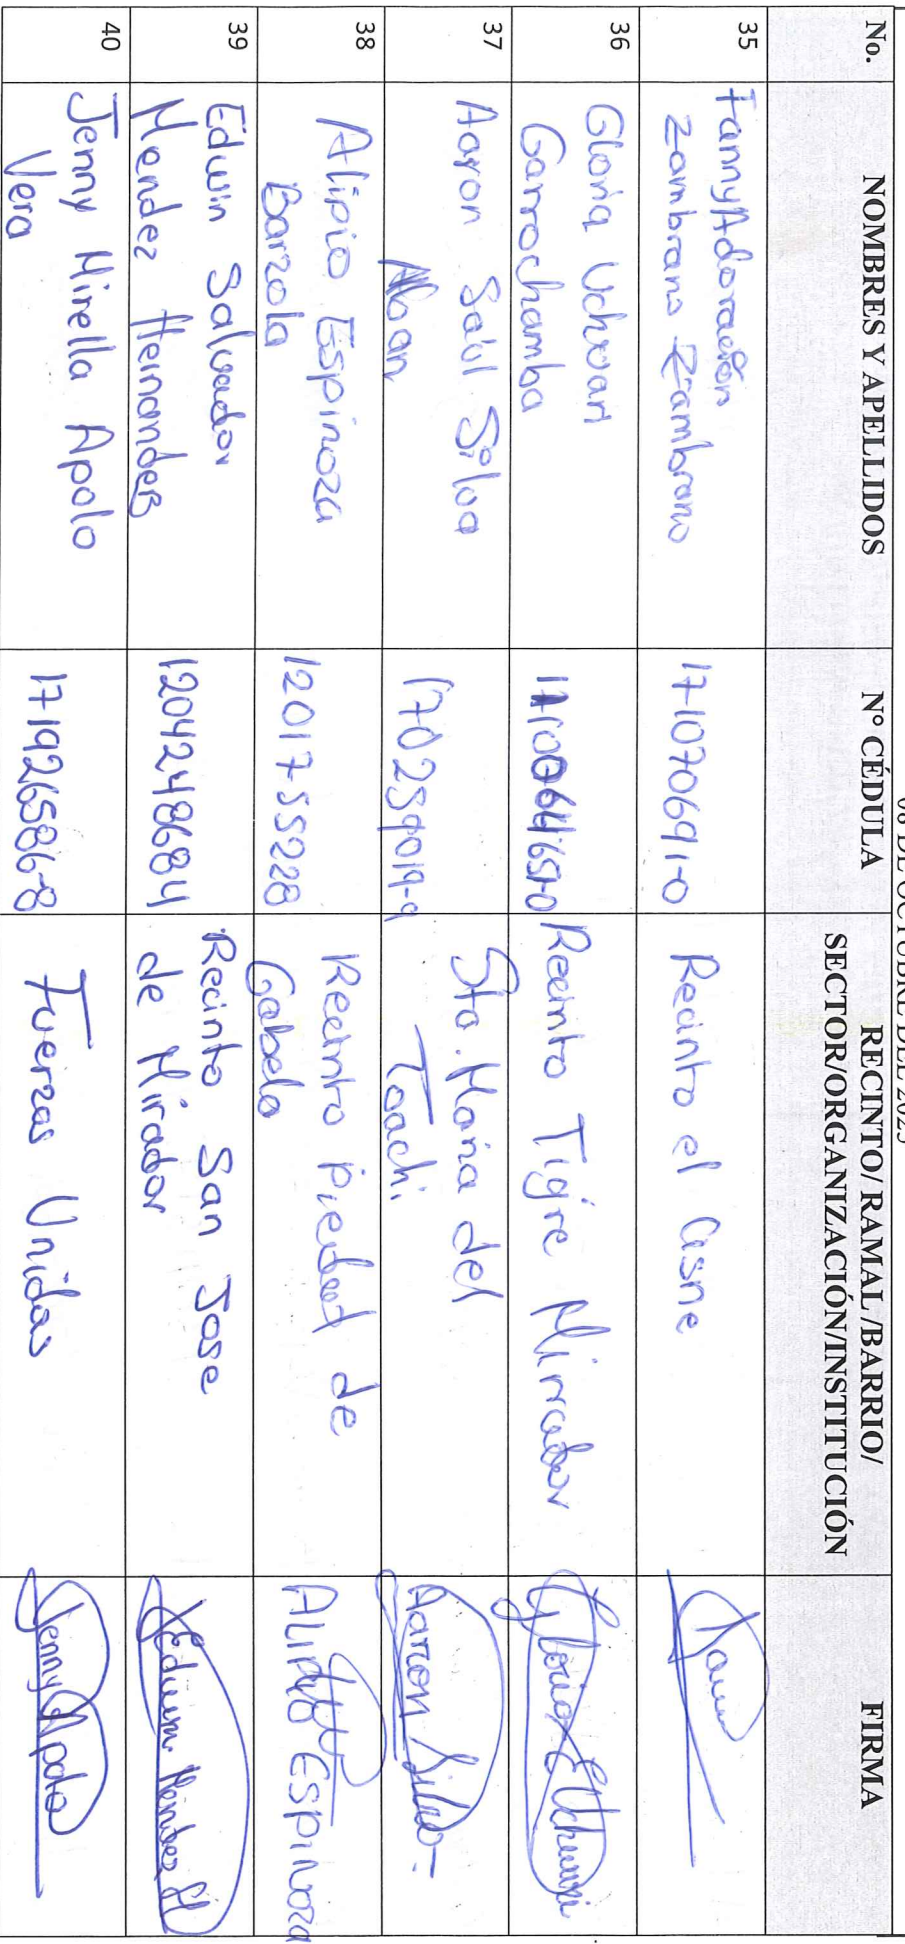 06 DE OCTUBRE DEL 2025
No. NOMBRES Y APELLIDOS N° CÉDULA RECINTO/ RAMAL /BARRIO/ SECTOR/ORGANIZACIÓN/INSTITUCIÓN FIRMA
35 Fanny Adoración
Zambrano Zambrano 171070691-0 Recinto el Cisne
36 Gloria Uchuari
Garrochamba Recinto Tigre Mirador Gloria E Uchuari
37 Aaron Saúl Silva
170259019-9 Sto. Maria del
Toachi. Aaron Silva
38 Alipio Espinoza
Barzola 1201755228 Recinto Piedad de
Cabelo ALIPIO ESPINOZA
39 Edwin Salvador
Mendez Hernandes 1204248684 Recinto San Jose
de Mirador Edwin Méndez H
40 Jenny Mirella Apolo
Vera 171926586-8 Fuerzas Unidas Jenny Apolo